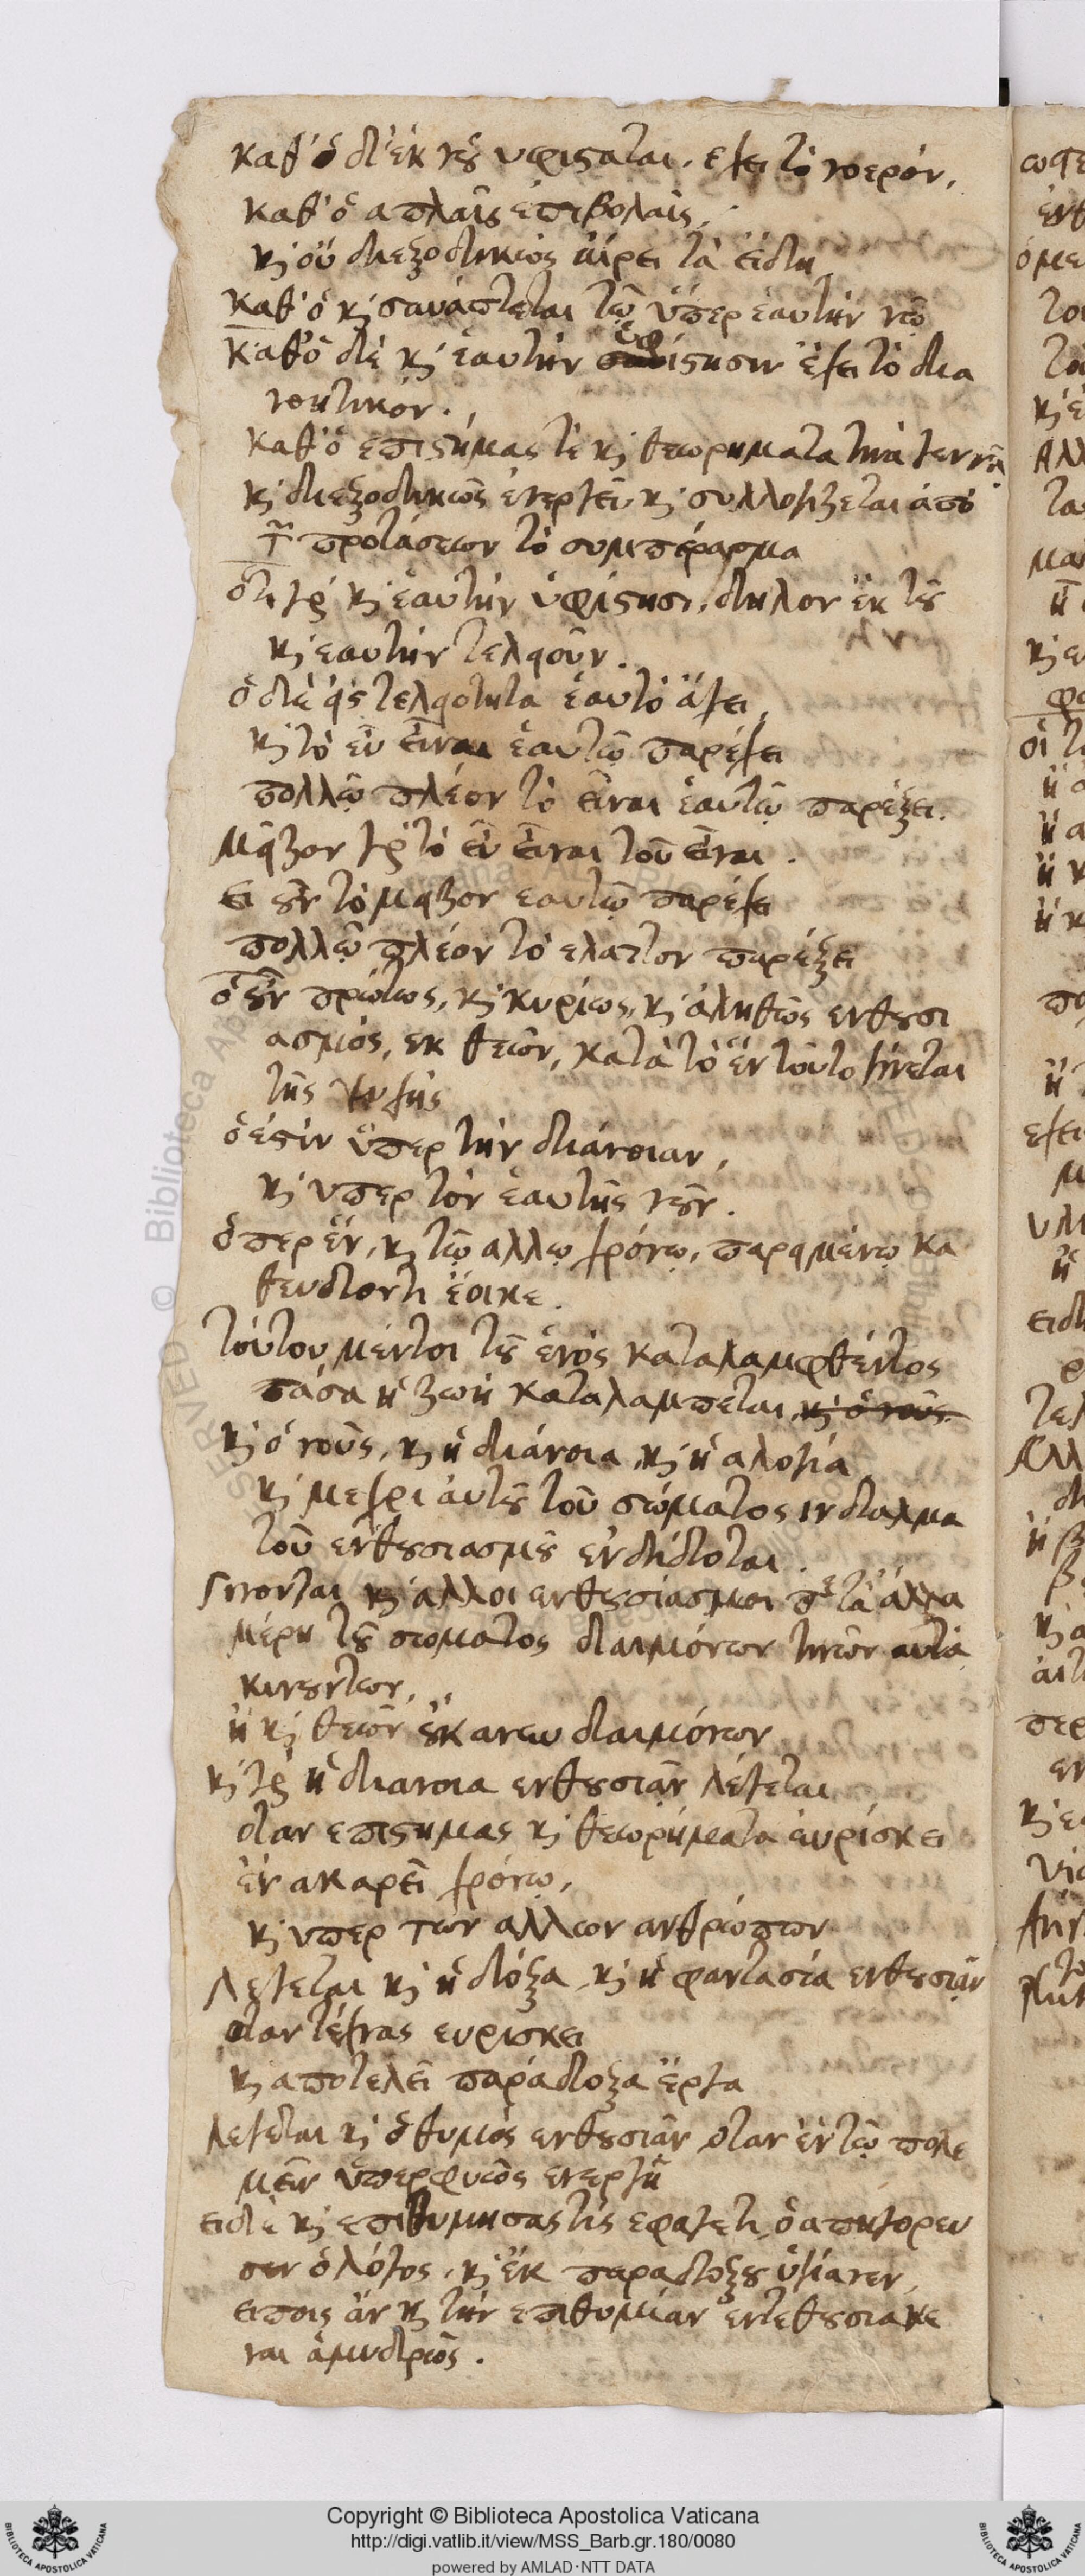 καθ' ὃ δ' ἐκ νοῦ υφισαται. εχει τὸ νοερόν,
καθ' ὃ απλαῖς ἐπιβολαῖς,
κ̀ οὐ διεξοδικῶς αἱρει τὰ εἴδη
καθ' ὃ κ̀ συνάπτεται τῷ ὑπερ ἑαυτὴν νῷ
καθ' ὃ δὲ κ̀ ἑαυτὴν ὑφίστησιν ἔχει τὸ δια
νοητικόν.
καθ' ὃ επιστήμας τὲ κ̀ θεωρηματα τινὰ γεννᾷ
κ̀ διεξοδικῶς ἐνεργεῖ, κ̀ συλλογίζεται ἀπὸ
τ͂ προτάσεων τὸ συμπέρασμα
ὅτι γὰρ κ̀ ἑαυτὴν ὑφίστησι, δηλον ἐκ τοῦ
κ̀ εαυτὴν τελειοῦν.
ὁ δὲ εἰς τελειοτητα ἑαυτὸ ἄγει,
κ̀ τὸ εὖ εἶναι ἑαυτῷ παρέχει
πολλῷ πλέον τὸ εἶναι ἑαυτῷ παρέξει.
μεῖζον γὰρ τὸ εὖ εἶναι τοῦ εἶναι.
ει οὖν τὸ μεῖζον εαυτῷ παρέχει
πολλῷ πλέον τὸ ελαττον παρέξει
ὁ οὖν πρώτως, κ̀ κυρίως, κ̀ ἀληθῶς ενθουσι
ασμὸς, εκ θεῶν, κατὰ τὸ ἓν τοῦτο γίνεται
τῆς ψυχῆς
ὅ ἐστὶν ὑπερ τὴν διάνοιαν,
κ̀ υπερ τὸν ἑαυτῆς νοῦν.
ὅπερ ἓν, κ̀ τῷ αλλῳ χρόνῳ, παρειμένῳ κα
θευδοντι ἔοικε.
τούτου μέντοι τοῦ ἑνὸς καταλαμφθέντος
πᾶσα ἡ ζωὴ καταλαμπεται, κ̀ ὁ νοῦς.
κ̀ ὁ νοῦς, κ̀ ἡ διάνοια, κ̀ ἡ αλογία
κ̀ μεχρι αὐτοῦ τοῦ σώματος ινδαλμα
τοῦ ενθουσιασμοῦ ἐνδίδοται.
γινονται κ̀ αλλοι ενθουσίασμοι πε τὰ ἄλλα
μέρη τοῦ σωματος δαιμόνων τινῶν αυτὰ
κινουντων,
ἢ κ̀ θεῶν οὐκ ανευ δαιμόνων
κ̀ γὰρ ἡ διανοια ενθουσιᾷν λέγεται
οταν επιστημας κ̀ θεωρήματα εὑρίσκει
ἐν ακαρεῖ χρόνῳ,
κ̀ υπερ των αλλων ανθρώπων
λεγεται κ̀ ἡ δόξα, κ̀ ἡ φαντασία ενθουσιᾷν
οταν τέχνας ευρισκει
κ̀ αποτελεῖ παράδοξα ἔργα
λεγεται κ̀ ὁ θυμὸς ενθουσιᾷν οταν ἐν τῷ πολε
μεῖν ὑπερφυῶς ενεργῇ
ει δὲ κ̀ επιθυμησας τὶς εφαγε τι, ὃ απηγορευ
σεν ὁ λόγος, κ̀ ἐκ παραδοξου ὑγίανεν,
ειποις ἂν κ̀ τὴν επιθυμίαν εντεθουσιακε
ναι ἀμυδρῶς.
Copyright © Biblioteca Apostolica Vaticana
http://digi.vatlib.it/view/MSS_Barb.gr.180/0080
powered by AMLAD·NTT DATA